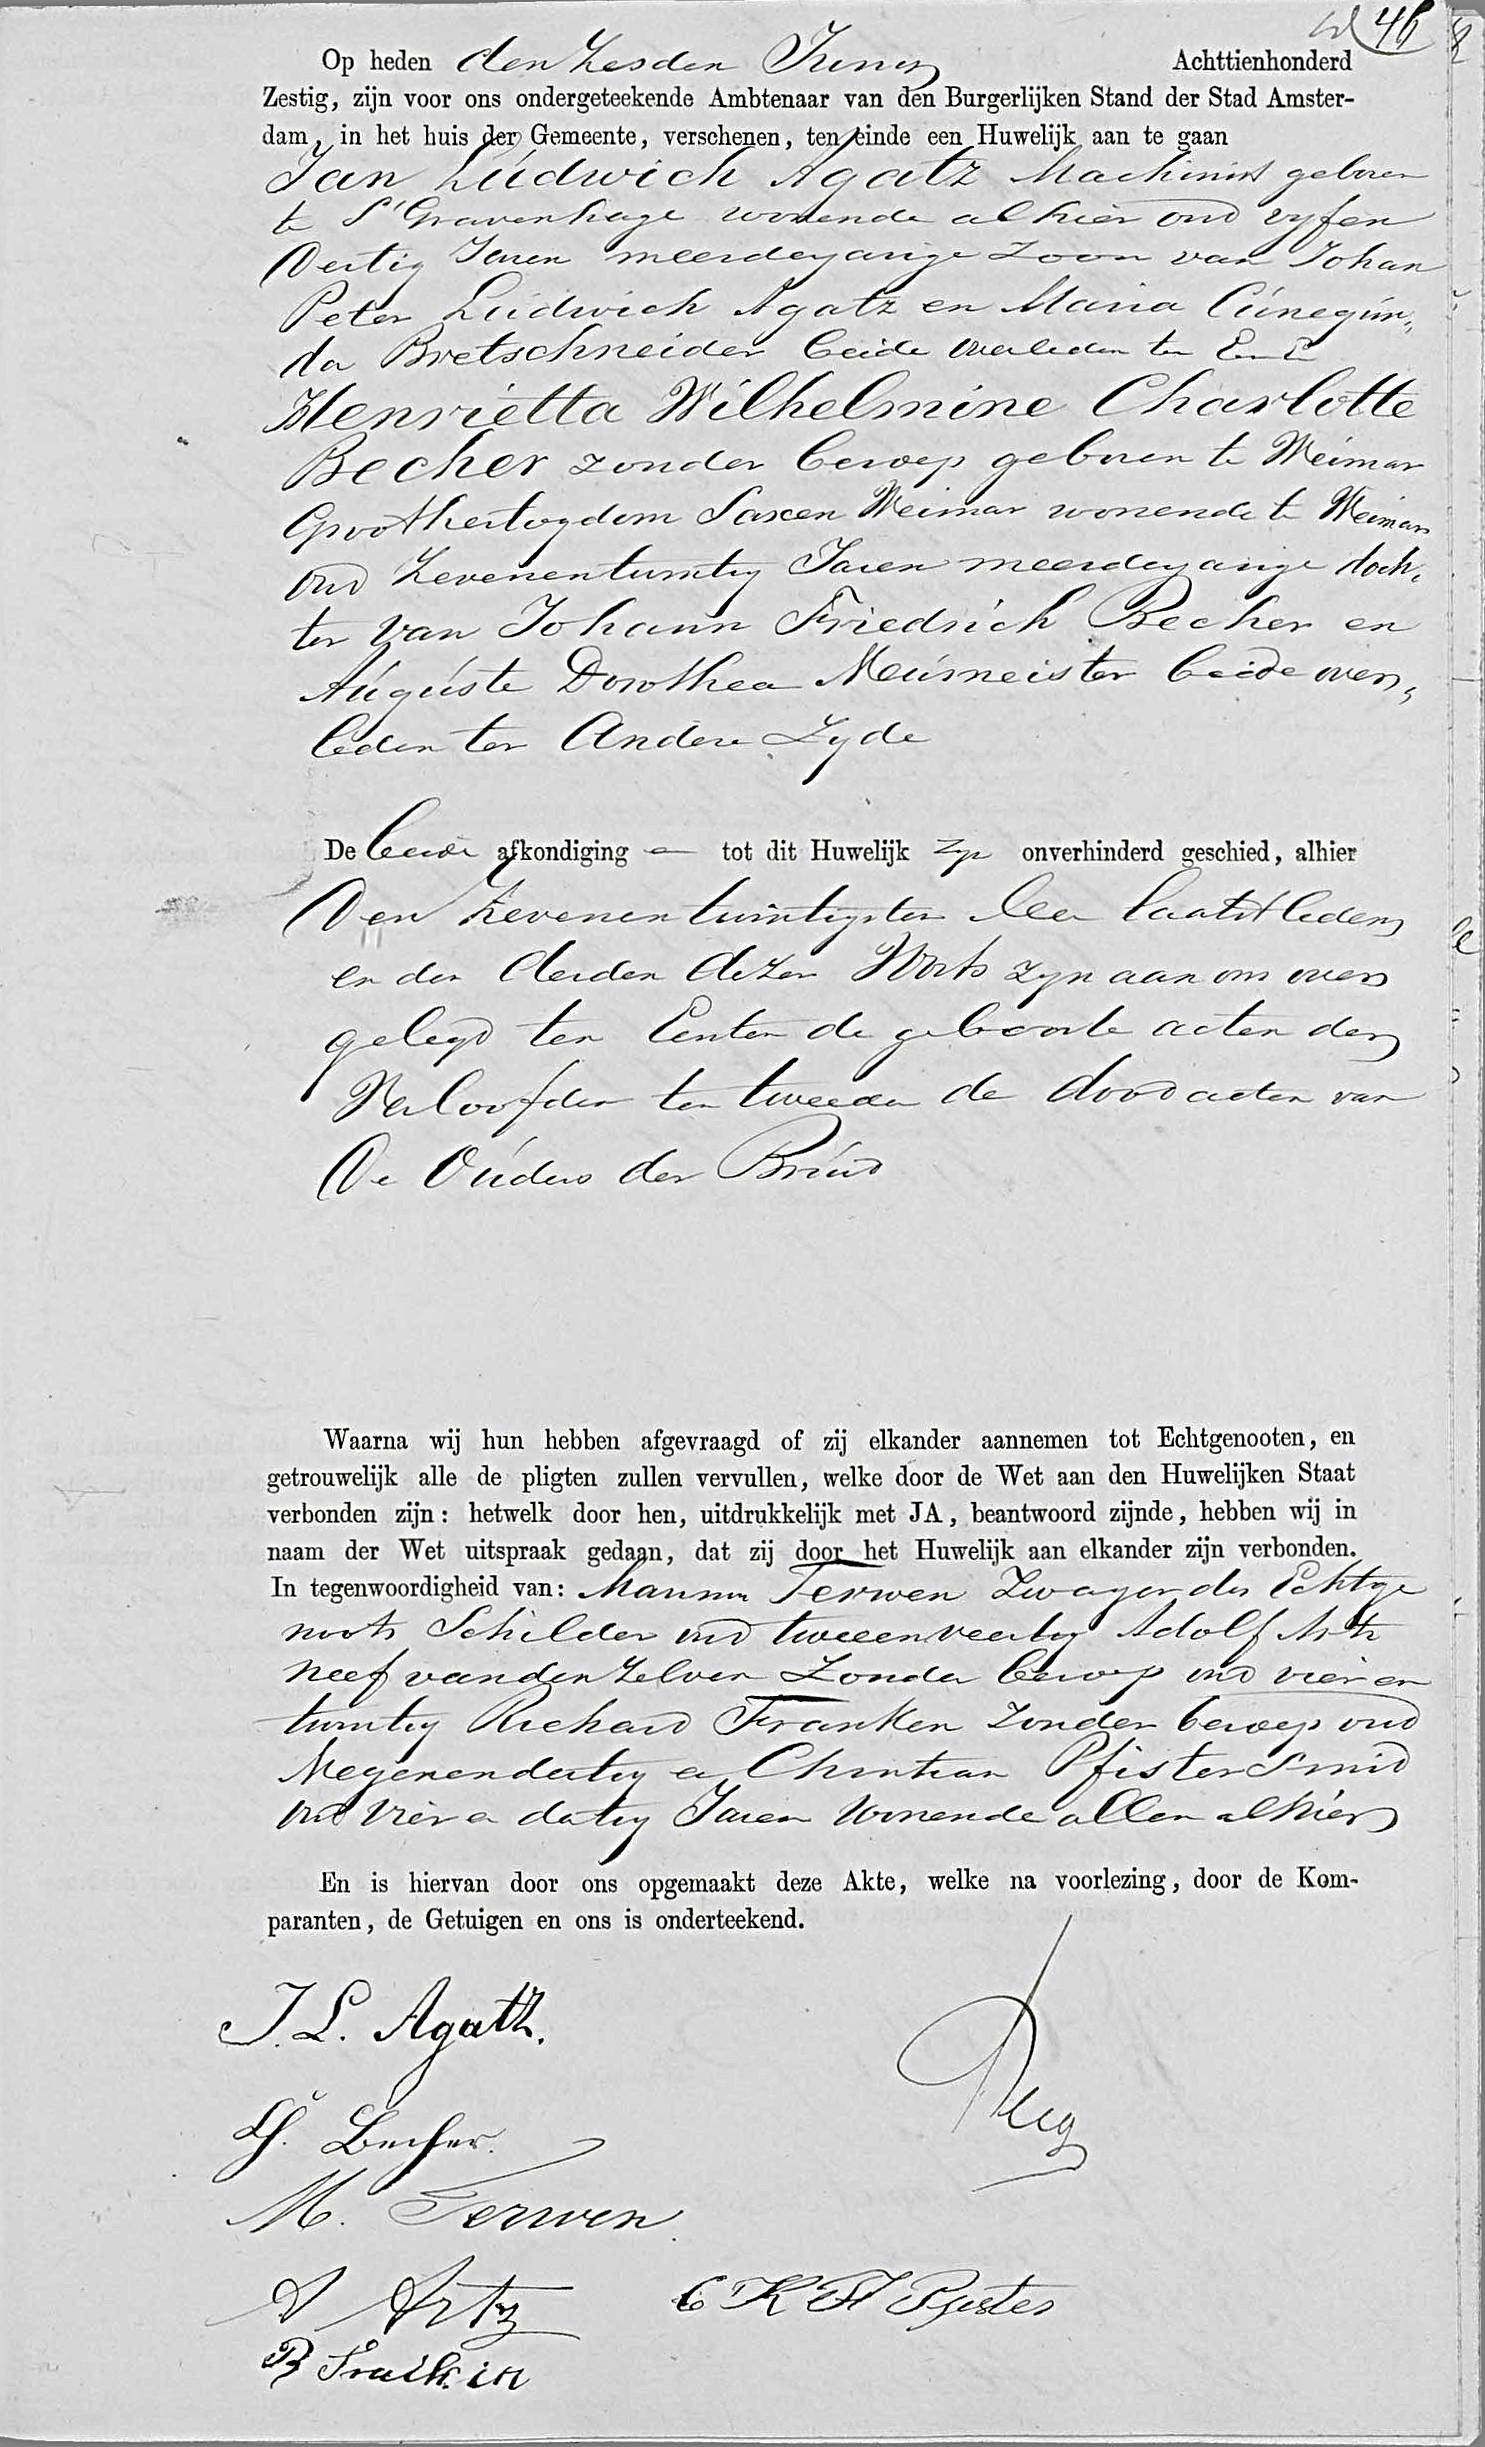 46
Op heden den Zesden Juny Achttienhonderd
Zestig, zijn voor ons ondergeteekende Ambtenaar van den Burgerlijken Stand der Stad Amster-
dam, in het huis der Gemeente, verschenen, ten einde een Huwelijk aan te gaan
Jan Ludwich Agatz Machinist geboren
te S'Gravenhage wonende alhier oud vyfen
Dertig Jaren meerderjarige zoon van Johan
Peter Ludwich Agatz en Maria Cunegun,
da Bretschneider beide overleden ter E. E
Henrietta Wilhelmine Charlotte
Becher zonder beroep geboren te Weimar
Groothertogdom Saxen Weimar wonende te Weimar
oud Zevenentwintig Jaren meerderjarige doch,
ter van Johann Friedrich Becher en
Auguste Dorothea Meusmeister beide over,
leden ter Andere Zyde
De beide afkondiging en tot dit Huwelijk zyn onverhinderd geschied, alhier
Den Zevenentwintigsten Mei laatstleden
en den derden dezer Werts zyn aan ons over
gelegd ten Eersten de geboorte acten der
Verloofden ten tweeden de dood acten van
De Ouders der Bruid
Waarna wij hun hebben afgevraagd of zij elkander aannemen tot Echtgenooten, en
getrouwelijk alle de pligten zullen vervullen, welke door de Wet aan den Huwelijken Staat
verbonden zijn: hetwelk door hen, uitdrukkelijk met JA, beantwoord zijnde, hebben wij in
naam der Wet uitspraak gedaan, dat zij door het Huwelijk aan elkander zijn verbonden.
In tegenwoordigheid van: Terwen Zwager des Echtge
noots Schilder oud tweeenveertig Adolf Artz
neef van den Zelven Zonder beroep oud vier en
twintig Richard Franken Zonder beroep oud
Negenendertig en Christiaan Pfister Smid
oud Vier en dertig Jaren Wonende allen alhier
En is hiervan door ons opgemaakt deze Akte, welke na voorlezing, door de Kom-
paranten, de Getuigen en ons is onderteekend.
J. L. Agatz.
Ch. Becher.
M. Terwen
A Artz C K F Pfister
R